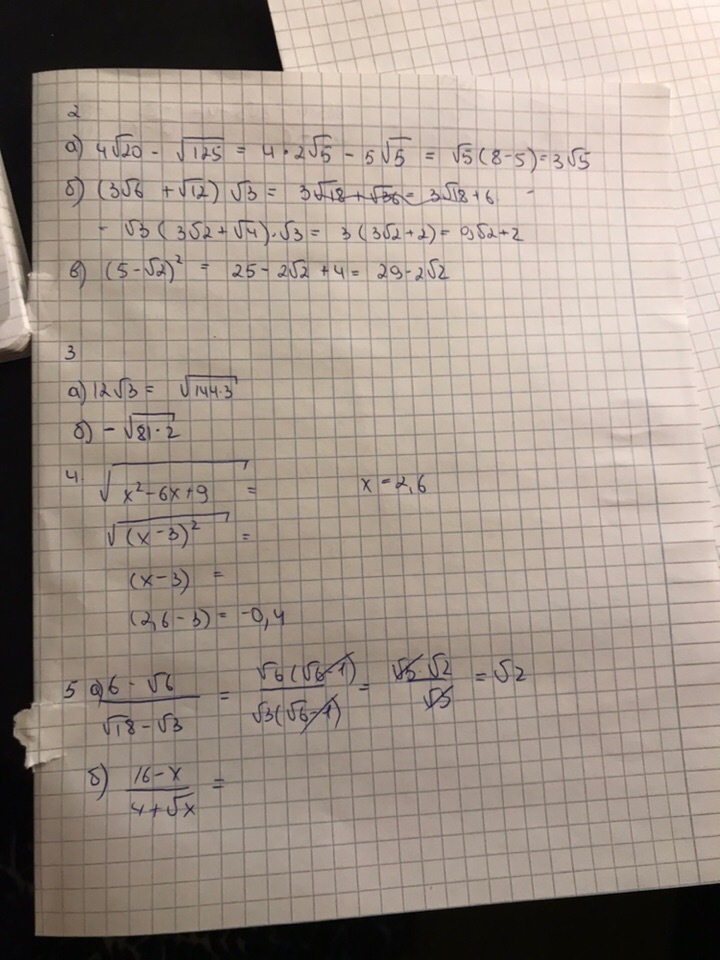 2
а) 4√20 - √125 = 4·2√5 - 5√5 = √5(8-5)=3√5
б) (3√6 +√12) √3 = 3√18+√36= 3√18+6 -
- √3 (3√2+√4)·√3 = 3(3√2+2)= 9√2+2
в) (5-√2)² = 25-2√2+4= 29-2√2
3
а) 12√3 = √144·3
б) -√81·2
4. √x²-6x+9 = x=2,6
√(x-3)² =
(x-3) =
(2,6-3) = -0,4
5 а) 6-√6 / √18-√3 = √6(√6-1) / √3(√6-1) = √3 √2 / √3 = √2
б) 16-x / 4+√x =